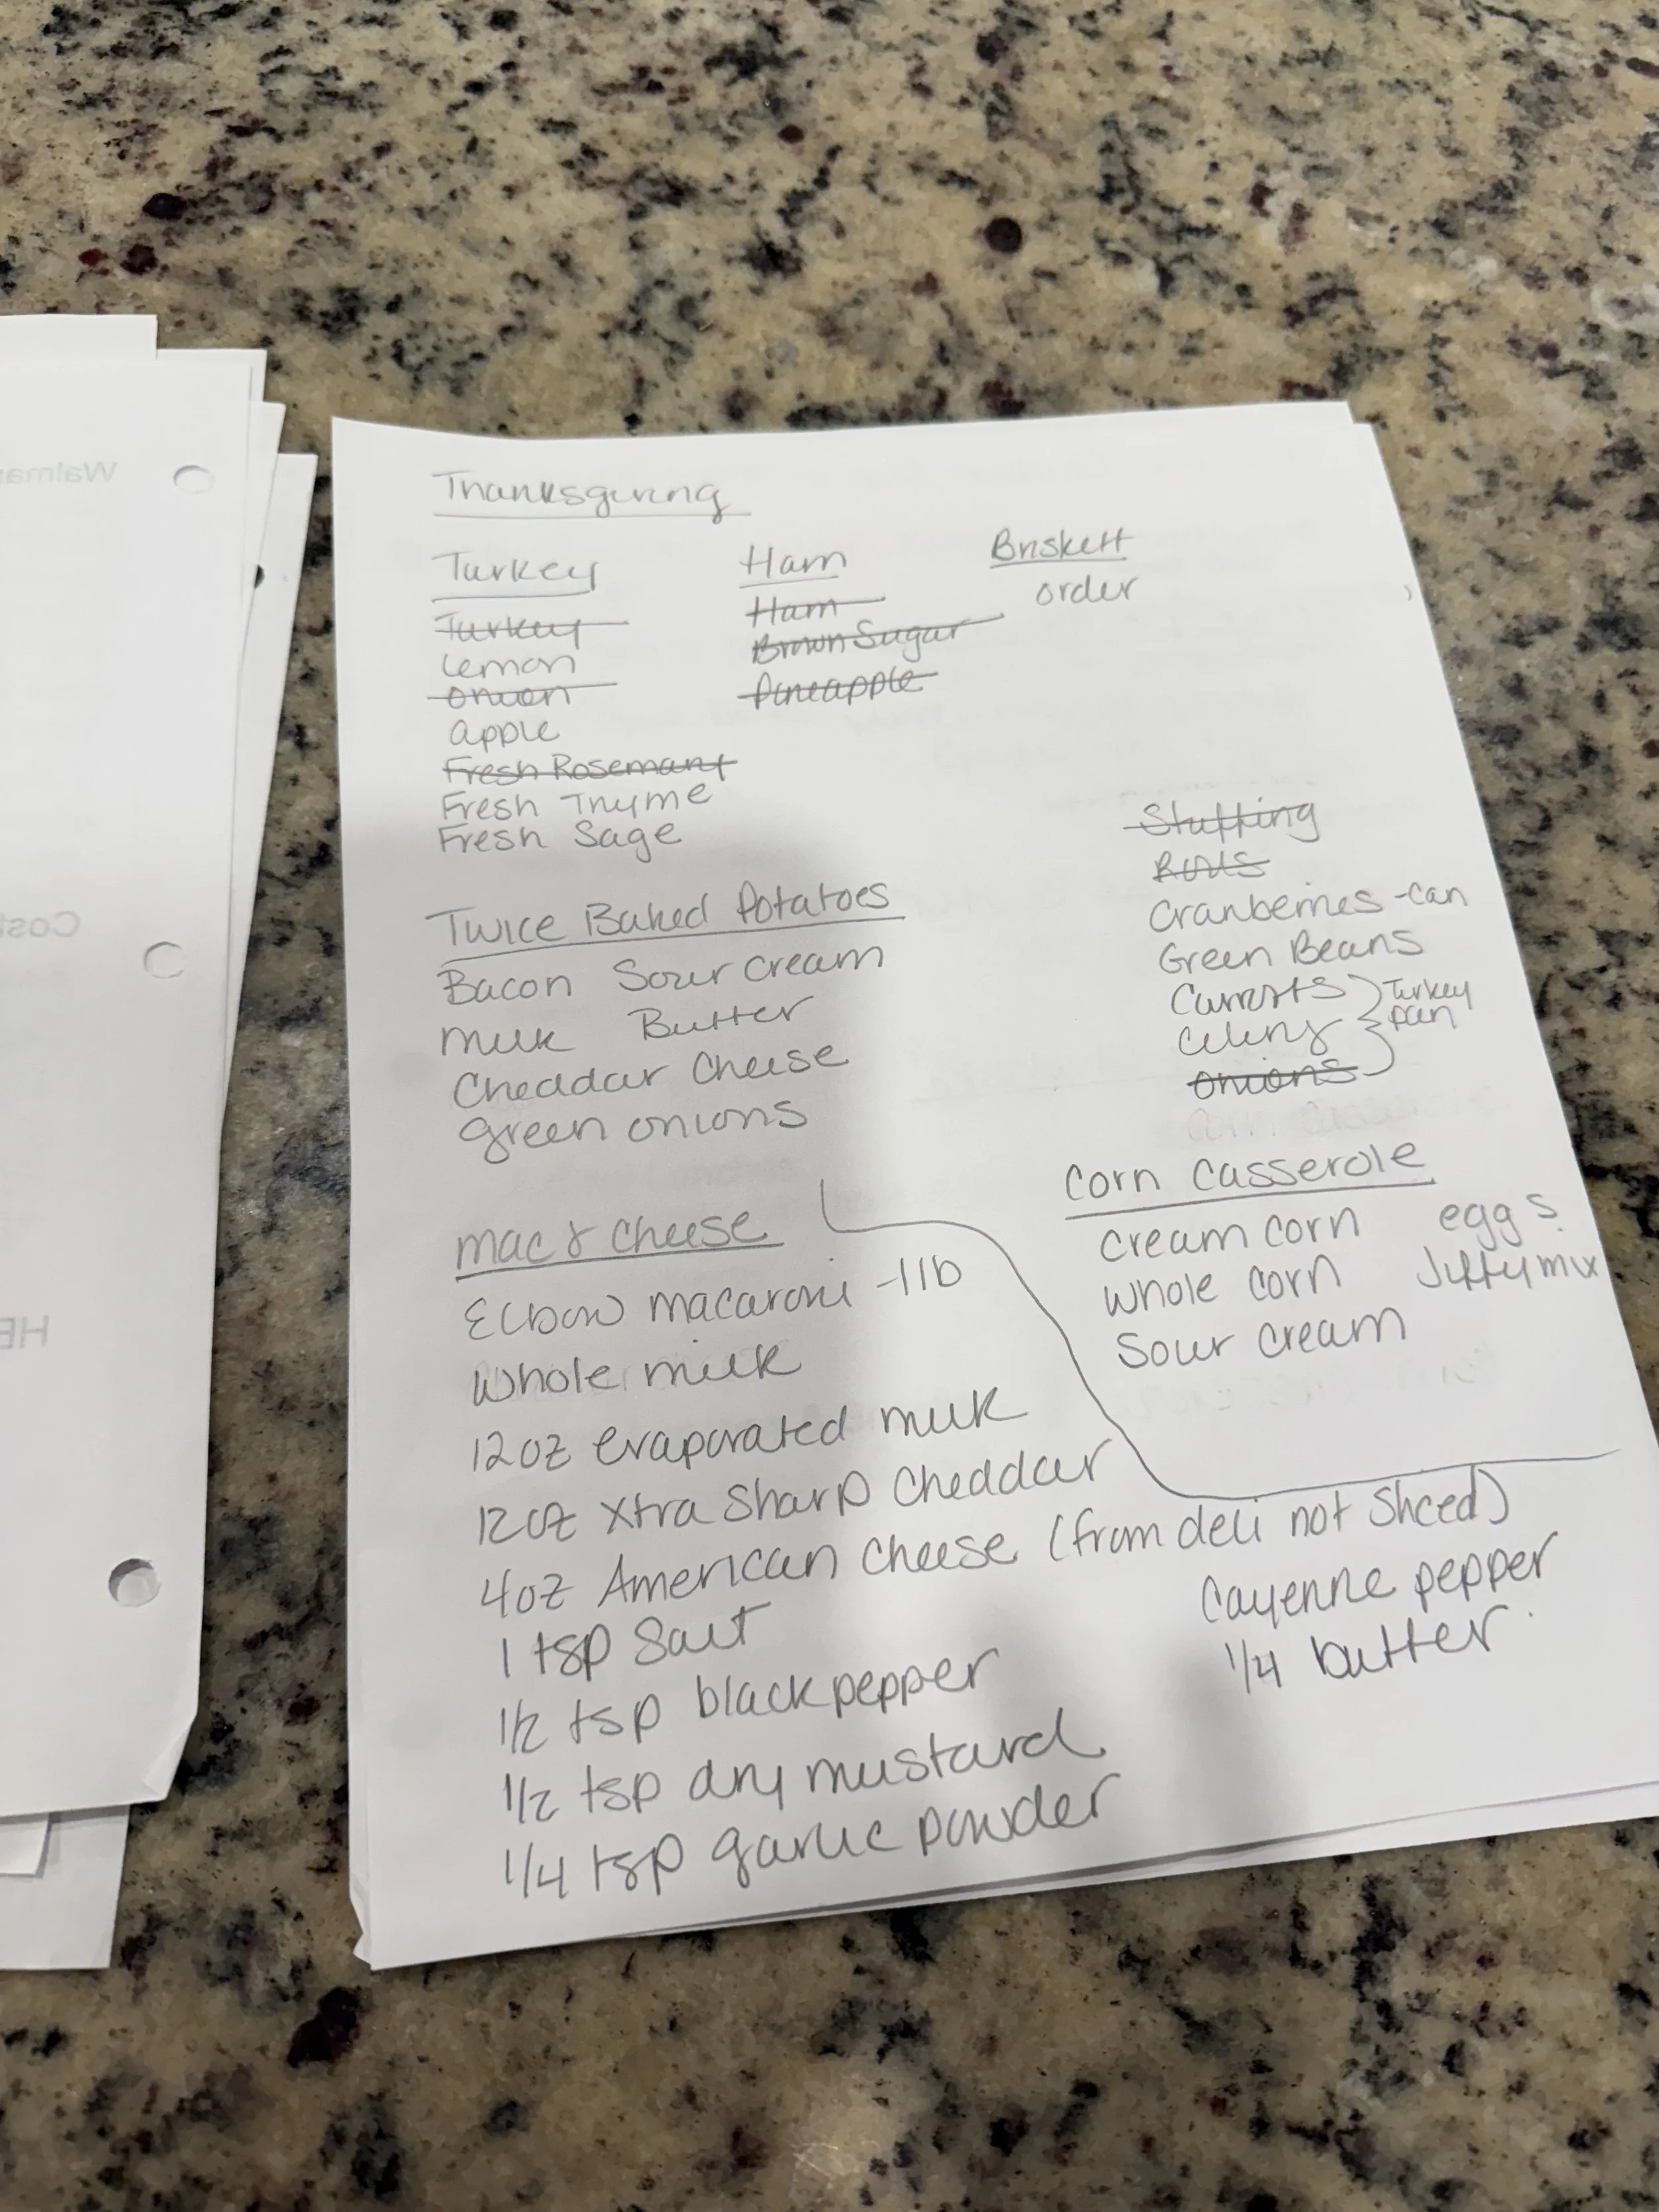 Thanksgiving
Turkey
Turkey
Lemon
onion
apple
Fresh Rosemary
Fresh Thyme
Fresh Sage
Ham
Ham
Brown Sugar
Pineapple
Briskett
order
Stuffing
Rolls
Cranberries - can
Green Beans
Carrots
Celery
onions
Turkey
pan
Twice Baked Potatoes
Bacon Sour cream
milk Butter
Cheddar Cheese
green onions
Corn Casserole
cream corn eggs
whole corn Jiffy mix
Sour cream
Mac & Cheese
Elbow macaroni - 1 lb
whole milk
12oz evaporated milk
12oz Xtra Sharp Cheddar
4oz American Cheese (from deli not Sliced)
1 tsp Salt
1/2 tsp black pepper
1/2 tsp dry mustard
1/4 tsp garlic powder
Cayenne pepper
1/4 butter
Walmar
Cost
HE